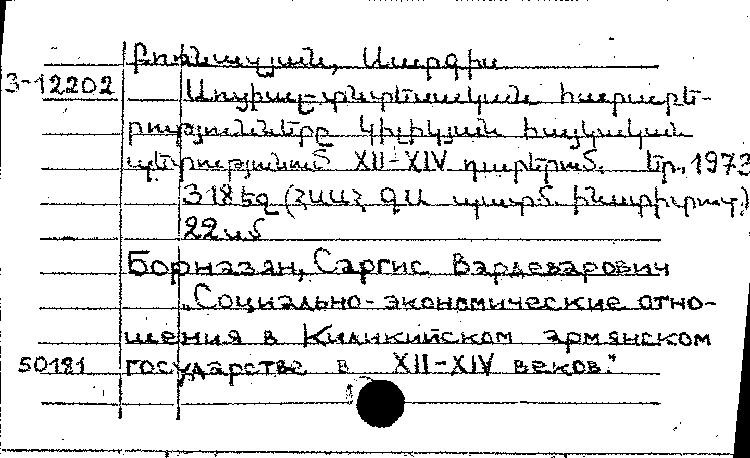 Բոռնազյան, Սարգիս
3-12202 Սոցիալ-տնտեսական հարաբե-
րությունները Կիլիկյան հայկական
պետությունում XII-XIV դարերում. Եր., 1973
318 եջ (ՀՍՍՀ ԳԱ պատմ. ինստիտուտ)
22 սմ
Борназян, Саргис Вардеварович
"Социально-экономические отно-
шения в Киликийском армянском
50181 государстве в XII-XIV веков."